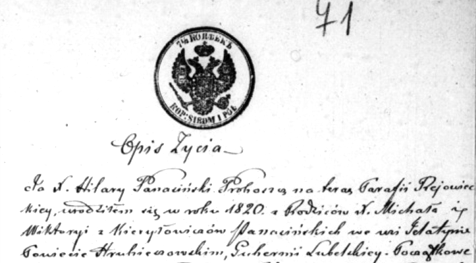 71
7½ КОПѢЕКЪ
КОП. SREBRем I PÓŁ
Opis Życia
Ja X. Hilary Panasiński Proboszcz na teraz Parafii Rejowiec-
kiej, urodziłem się w roku 1820. z Rodziców X. Michała i
Wiktoryi z Kieryłowiczów Panasińskich we wsi
Powiecie Hrubieszowskim, Gubernii Lubelskiej. Początkowe